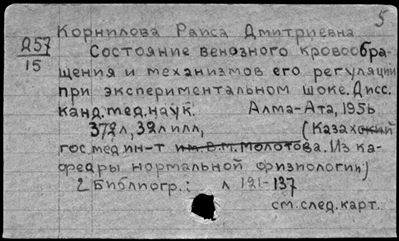 5
Корнилова Раиса Дмитриевна
Д57
15
Состояние венозного кровообра-
щения и механизмов его регуляции
при экспериментальном шоке. Дисс.
канд. мед. наук. Алма-Ата, 1956
372л, 32л илл, (Казахский
гос мед ин-т им. В.М. Молотова. Из ка-
федры нормальной физиологии)
Библиогр.: л 121-137
см. след. карт.